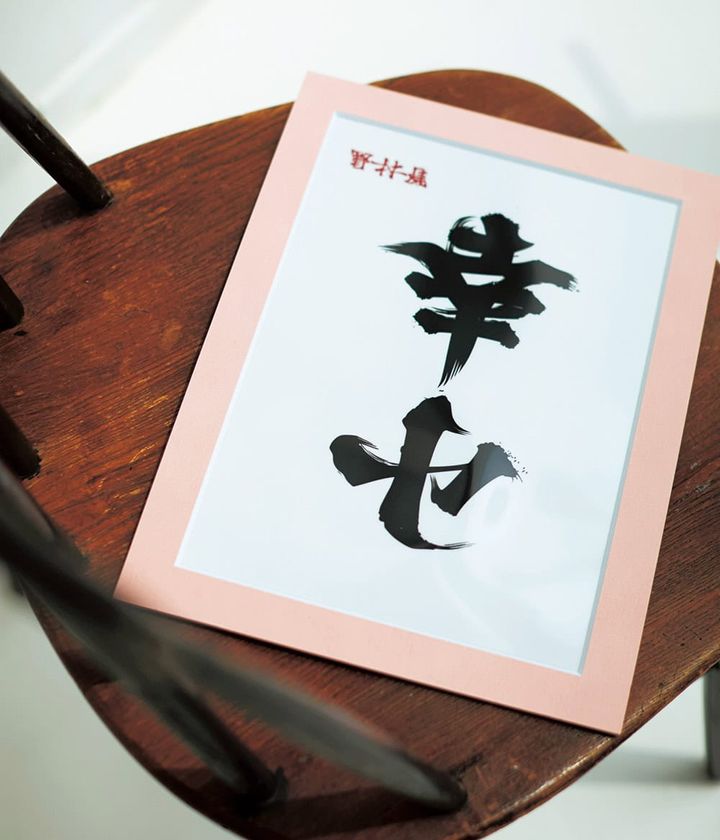 野村
幸せ